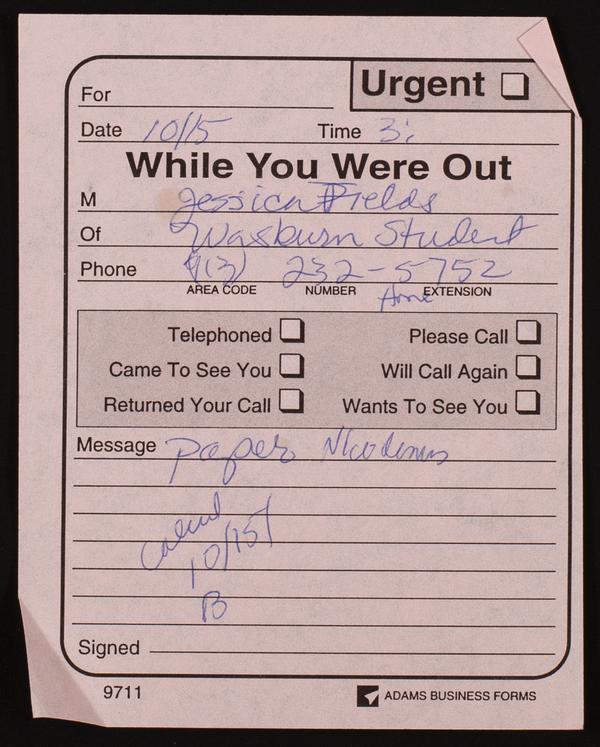 Urgent
For
Date 10/15 Time 3:
While You Were Out
M Jessica Fields
Of Wasburn Student
Phone (913) 232-5752
AREA CODE NUMBER EXTENSION
Home
Telephoned Please Call
Came To See You Will Call Again
Returned Your Call Wants To See You
Message paper Nicodemus
Called
10/15
B
Signed
9711 ADAMS BUSINESS FORMS